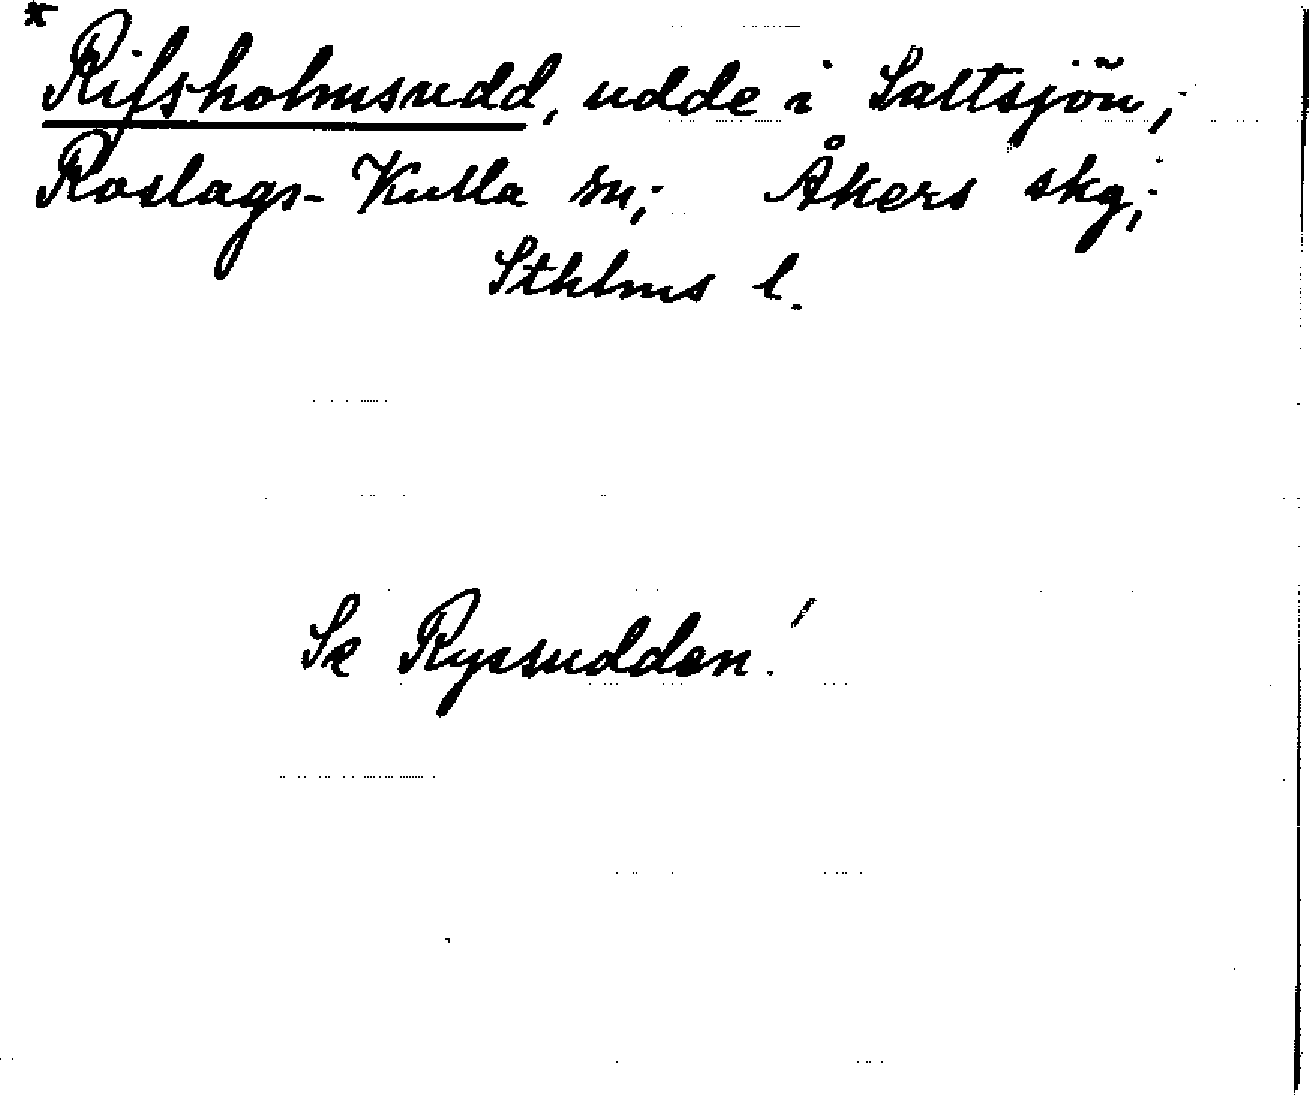 * Rifsholmsudd, udde i Saltsjön,
Roslags-Kulla sn; Åkers skg;
Sthlms l.
Se Ryssudden!